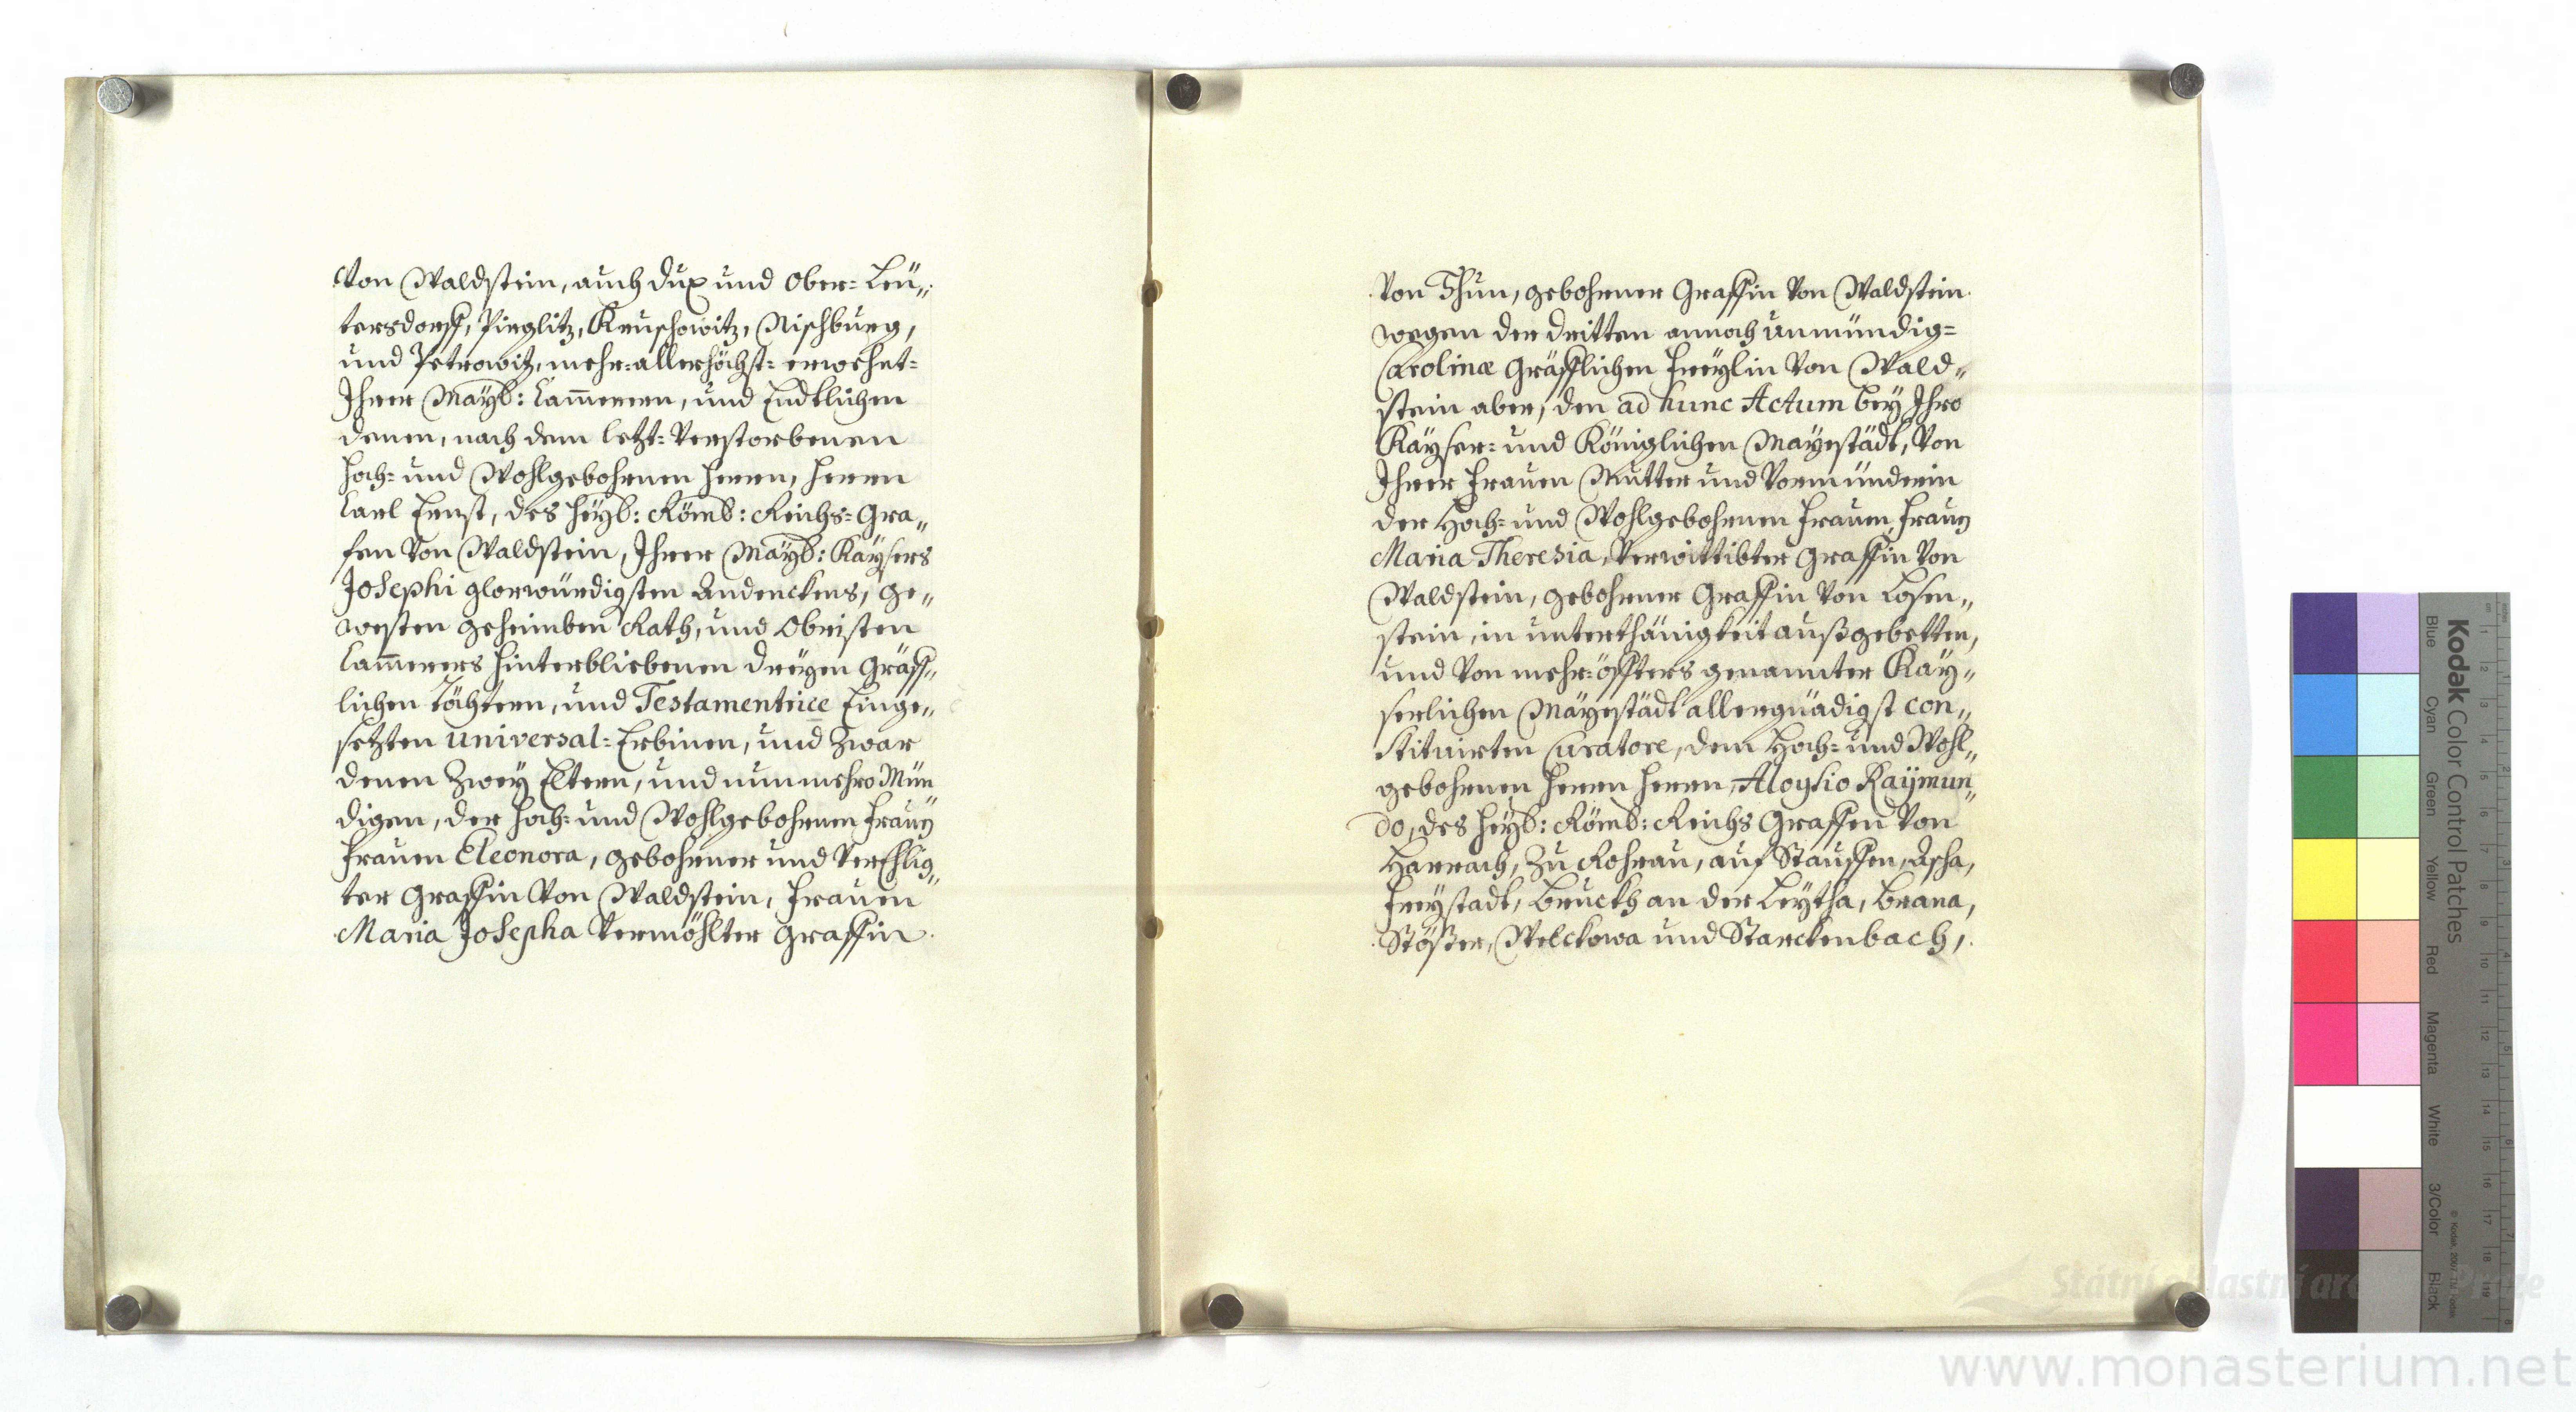 Von Waldstein, auch Dux und Ober= Leü„
tersdorff, Pirglitz, Kruschowitz, Nischburg,
und Petrowitz, mehr=allerhöchst= erwehnt=
Ihrer Mayt: Cam̄erern, und Endtlichen
denen, nach dem letzt= Verstorbenen
Hoch= und Wohlgebohrnen Herrn, Herrn
Carl Ernst, des Heyl: Röml: Reichs= Gra„
fen Von Waldstein, Ihrer Mayt: Kaysers
Josephi glorwürdigsten Andenckens, ge„
westen geheimben Rath, und Obristen
Cam̄erers Hinterbliebenen dreyen Gräff„
lichen Töchtern, und Testamentrice Einge„
setzten universal= Erbinen, und Zwar
denen Zwey Eltern, und nunmehro Mün
digen, der Hoch= und Wohlgebohrnen Frauen
Frauen Eleonora, gebohrner und Verehlig„
ter Graffin Von Waldstein, Frauen
Maria Josepha Vermöhlter Graffin
Von Thun, gebohrner Graffin Von Waldstein
wegen der dritten annoch unmündig=
Carolinæ Gräfflichen Freylin Von Wald„
stein aber, den ad hunc Actum bey Ihro
Kayser= und Königlichen Mayestädt, Von
Ihrer Frauen Mutter und Vormünderin
der Hoch= und Wohlgebohrnen Frauen Frauen
Maria Theresia, Verwittibter Graffin Von
Waldstein, gebohrner Graffin Von Losen„
stein, in unterthänigkeit außgebetten,
und Von mehr=öffters genannter Kay„
serlichen Mayestädt allergnädigst con„
stituirten Curatore, dem Hoch= und Wohl„
gebohrnen Herrn Herrn, Aloysio Raymun„
do, des Heyl: Röml: Reichs Graffen Von
Harrach, Zu Rohrau, auf Stauffen, Ascha,
Freystadt, Bruckh an der Leytha, Brana,
Stößer, Welckowa und Starckenbach,
Kodak Color Control Patches
Blue Cyan Green Yellow Red Magenta White 3/Color Black
www.monasterium.net